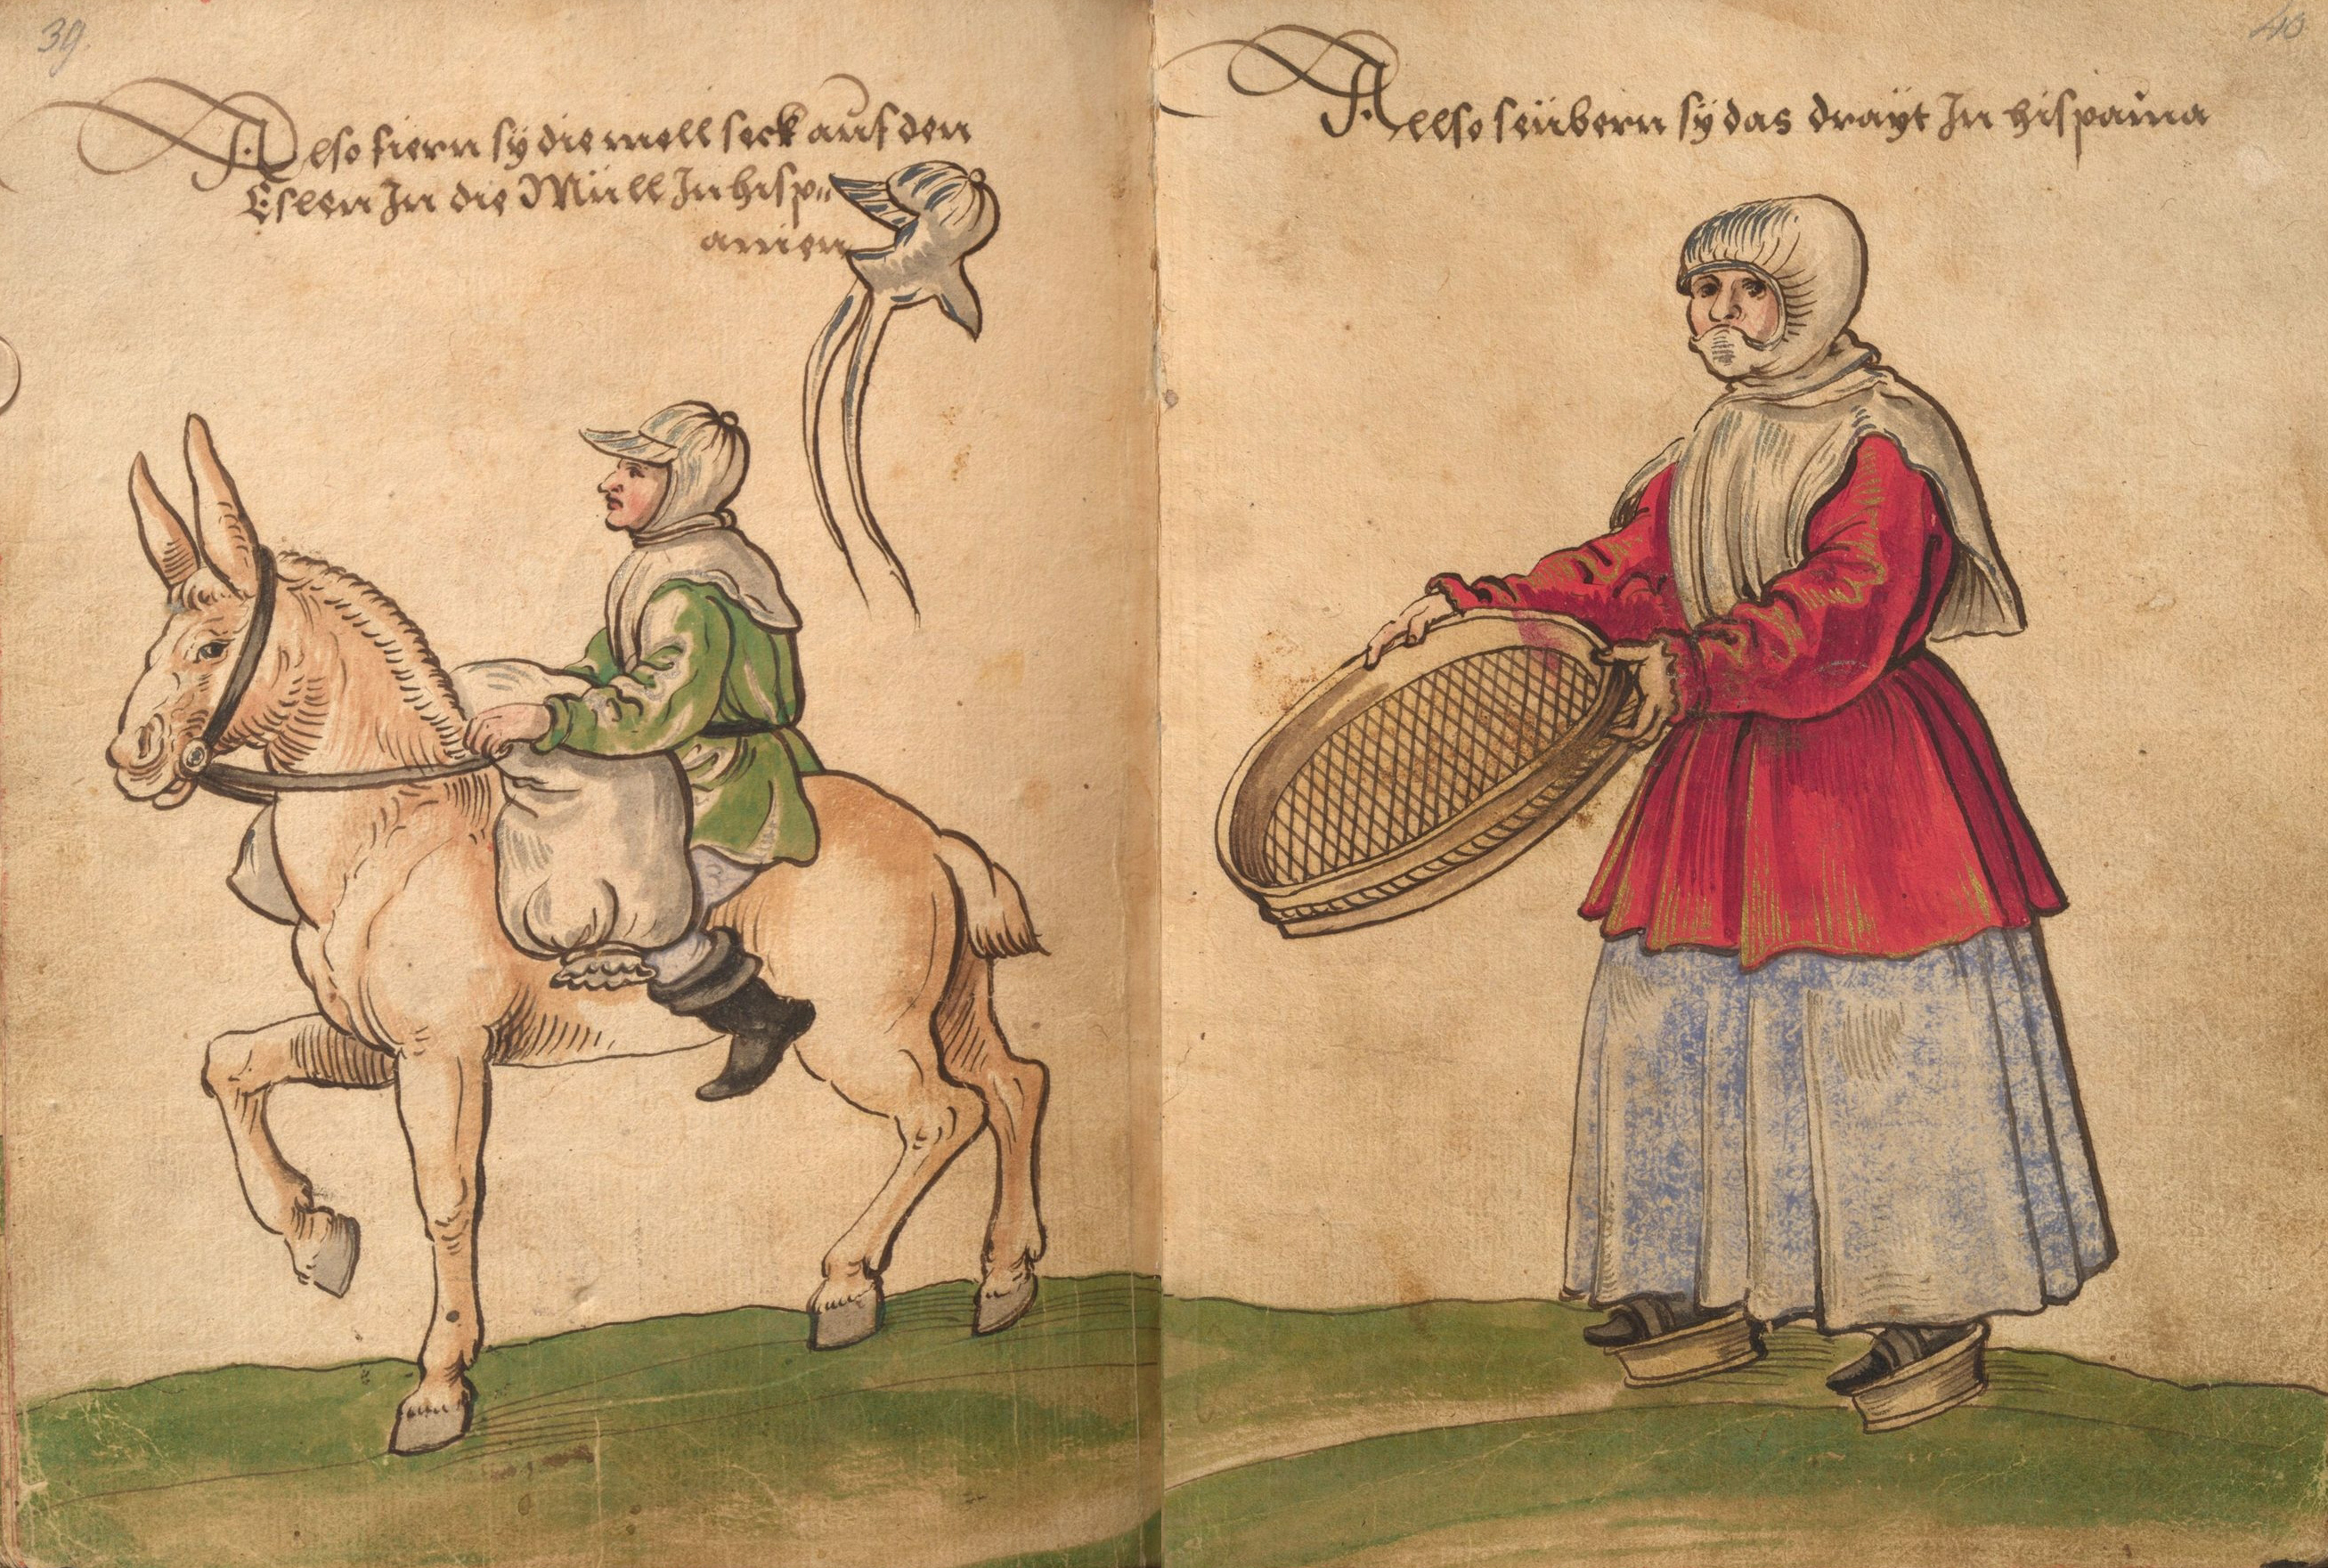 39
Also fiern sÿ die mell seck auf den
Eslen In die Müll In hisp=
anien
40
Allso seübern sÿ das draÿt In hispania